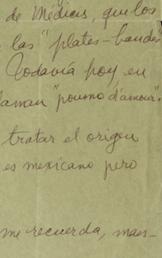 de Médicis, que los
las "plates-bandes
Todavía hoy en
laman "pommo d'amour"
tratar el origen
es mexicano pero
me recuerda, maes-